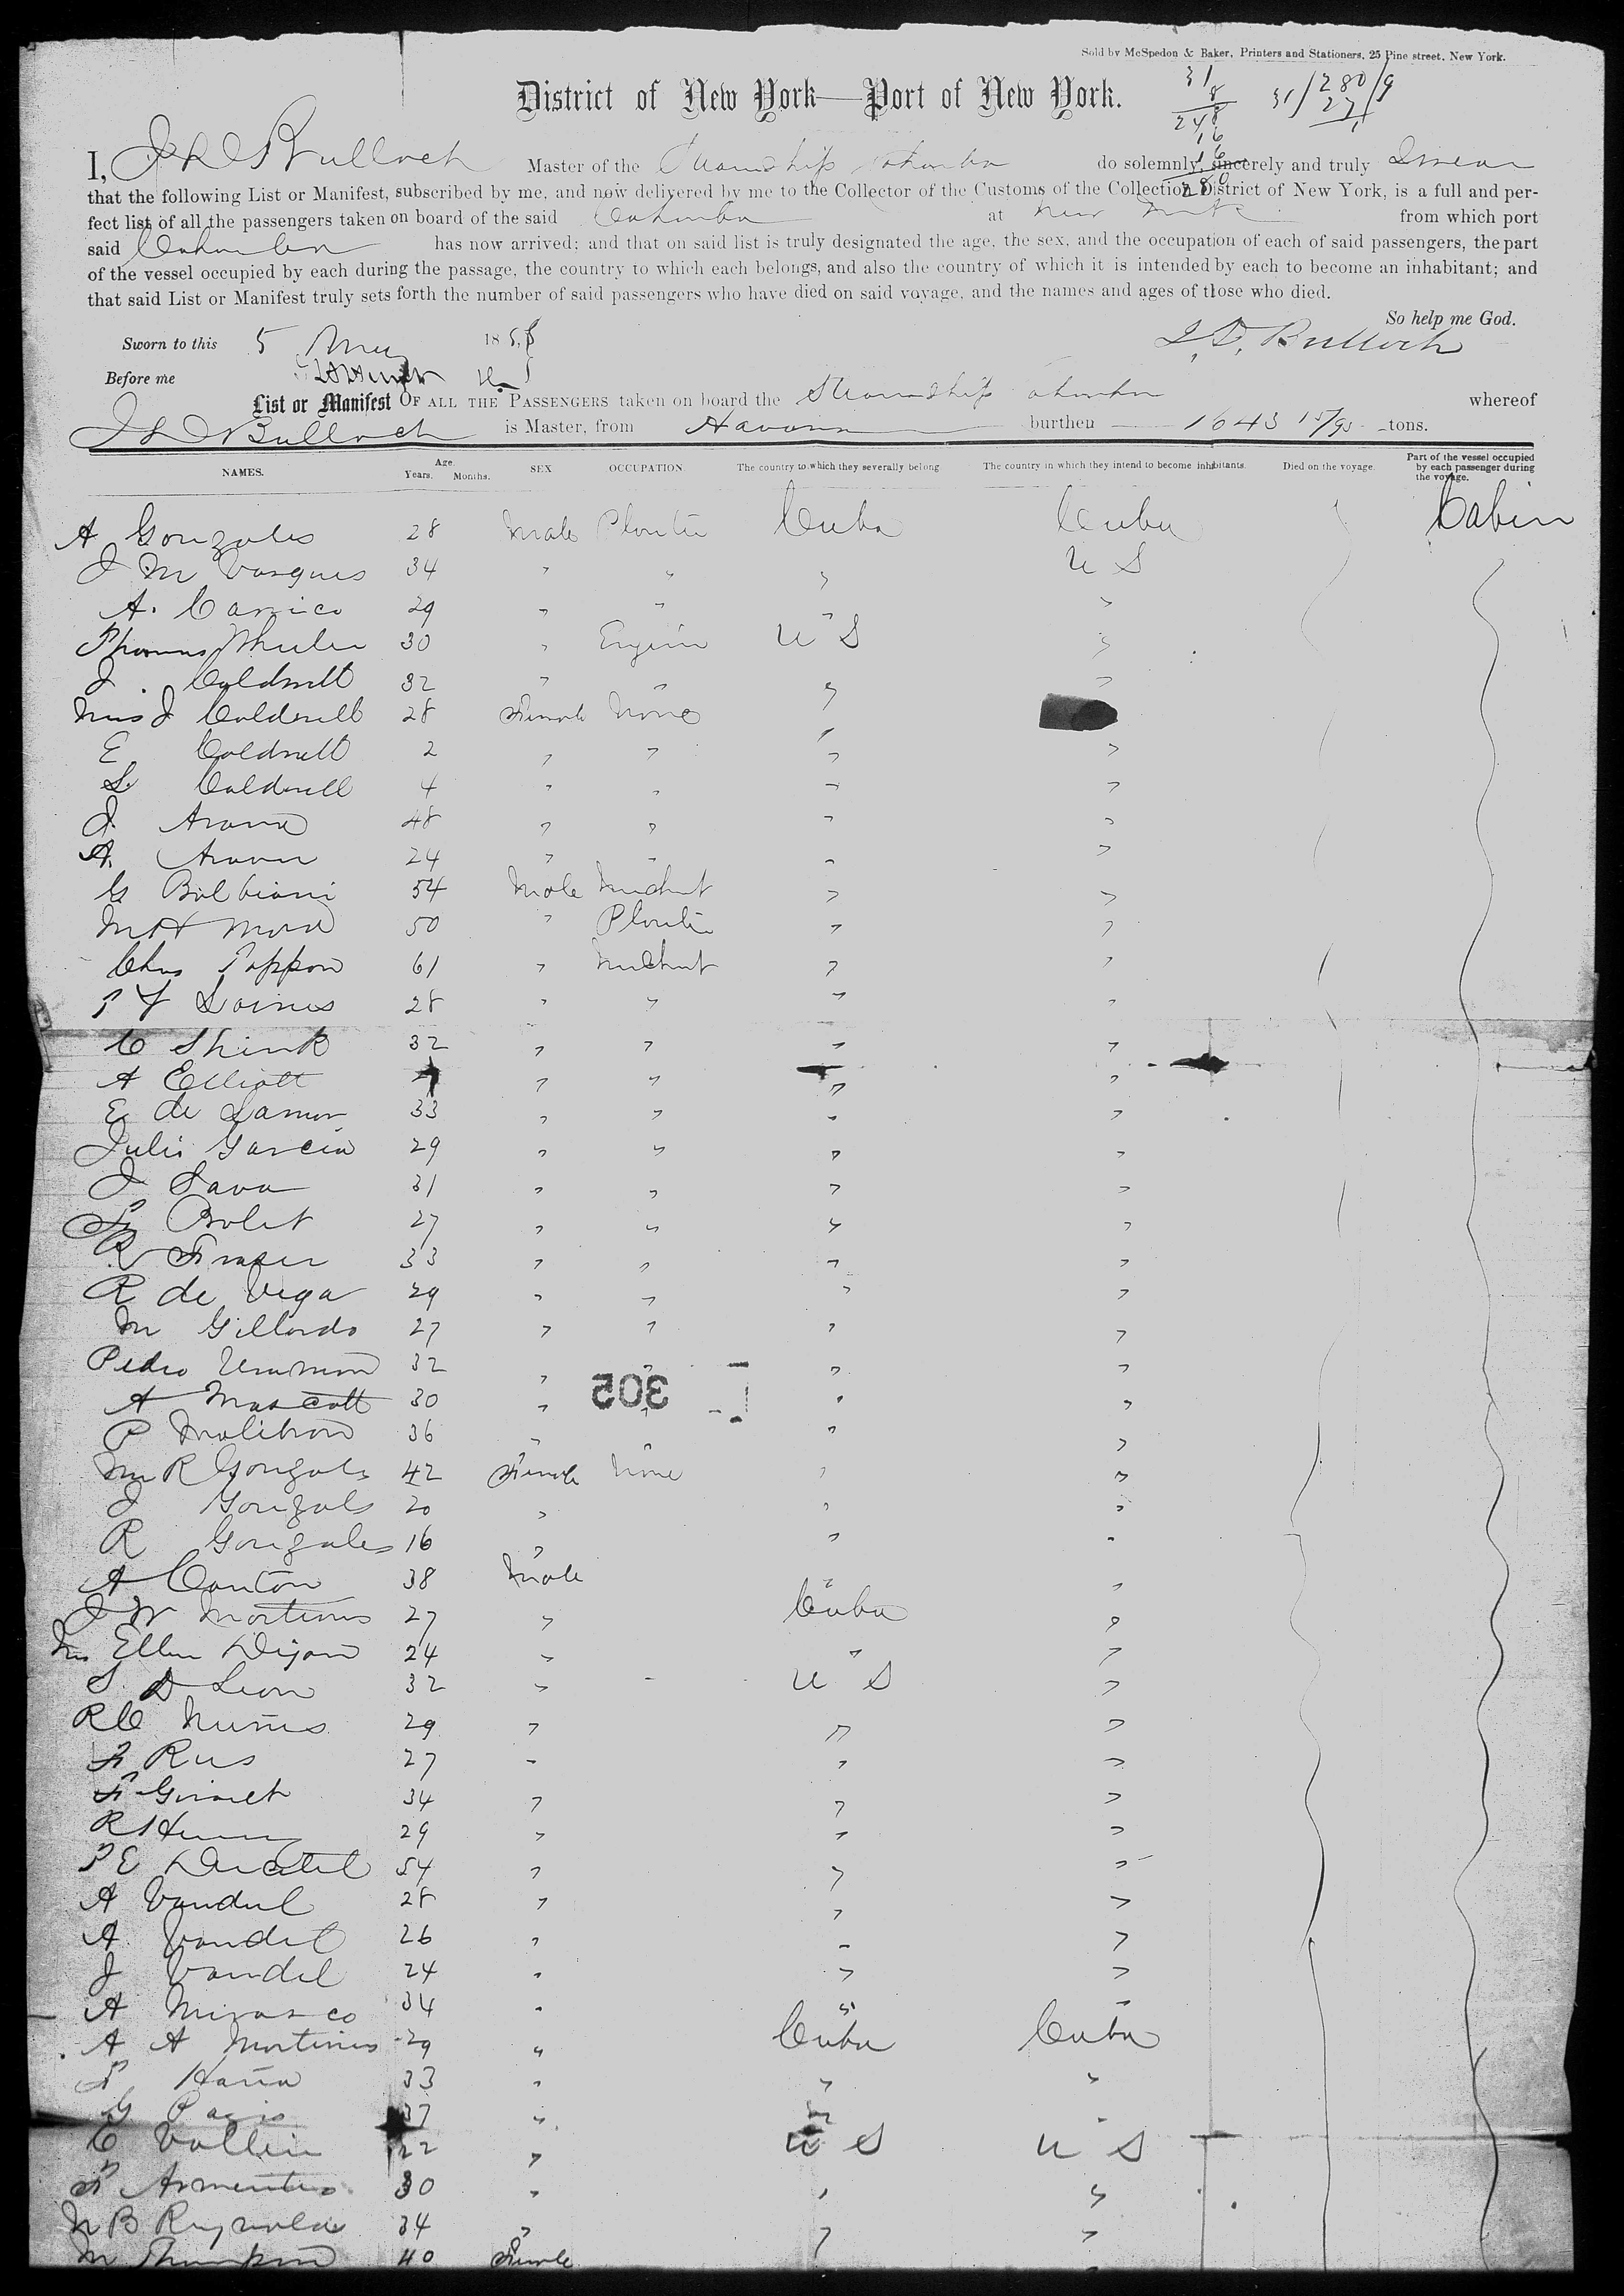 Sold by McSpedon & Baker, Printers and Stationers, 25 Pine street, New York.
District of New York—Port of New York.
31/280/9
I, J D Bulloch Master of the Steamship Cahawba do solemnly, sincerely and truly Swear
that the following List or Manifest, subscribed by me, and now delivered by me to the Collector of the Customs of the Collection District of New York, is a full and per-
fect list of all the passengers taken on board of the said Cahawba at New York from which port
said Cahawba has now arrived; and that on said list is truly designated the age, the sex, and the occupation of each of said passengers, the part
of the vessel occupied by each during the passage, the country to which each belongs, and also the country of which it is intended by each to become an inhabitant; and
that said List or Manifest truly sets forth the number of said passengers who have died on said voyage, and the names and ages of those who died.
So help me God.
Sworn to this 5 May 185 J. D. Bulloch
Before me
List or Manifest OF ALL THE PASSENGERS taken on board the Steamship Cahawba whereof
J D Bulloch is Master, from Havana burthen 1643 15/95 tons.
NAMES. Age. Years. Months. SEX OCCUPATION. The country to which they severally belong The country in which they intend to become inhabitants. Died on the voyage. Part of the vessel occupied by each passenger during the voyage.
A Gonzales 28 Male Planter Cuba Cuba Cabin
J M Vasques 34 " " " U S
A. Carrico 29 " " " "
Thomas Wheeler 30 " Engin U S "
J. Caldwell 32 " " " "
Mrs J Caldwell 28 Female None "
E Caldwell 2 " " " "
L Caldwell 4 " " " "
J 48 " " " "
A. 24 " " " "
G Balbiani 54 Male Merchnt " "
M H Mora 50 " Planter " "
Chas Poppon 61 " Merchnt " "
P Y Soines 28 " " " "
C Shink 32 " " " "
A Elliott " " " "
E de Lamar 33 " " " "
Julio Garcia 29 " " " "
J Sava 31 " " " "
Bolet 27 " " " "
R Fraser 33 " " " "
R de Vega 29 " " " "
M Gillardo 27 " " " "
Pedro 32 " " " "
A Mascott 30 " " " "
305
P Malibran 36 " " "
Mrs R Gonzales 42 Female None " "
J Gonzals 20 " " "
R Gonzales 16 " " "
A Canton 38 Male " "
J W Martines 27 " Cuba "
Mrs Ellen Dijon 24 " " "
S D Leon 32 " U S "
R C Nunes 29 " " "
F Rus 27 " " "
F 34 " " "
R Henry 29 " " "
P E 54 " " "
A Vandel 28 " " "
A Vandel 26 " " "
J Vandel 24 " " "
A Mirasco 34 " " "
A A Martines 29 " Cuba Cuba
33 " " "
G 37 " " "
C Vallin 22 " U S U S
F Armenteros 30 " " "
N B Reynolds 34 " " "
M Thompson 40 Female